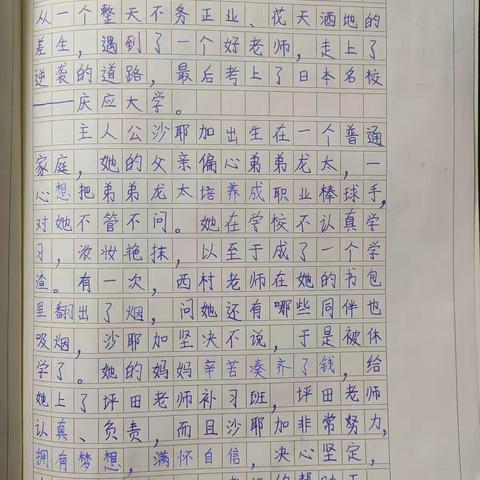 从一个整天不务正业、花天酒地的
差生，遇到了一个好老师，走上了
逆袭的道路，最后考上了日本名校
——庆应大学。
主人公沙耶加出生在一个普通
家庭，她的父亲偏心弟弟龙太，一
心想把弟弟龙太培养成职业棒球手，
对她不管不问。她在学校不认真学
习，浓妆艳抹，以至于成了一个学
渣。有一次，西村老师在她的书包
里翻出了烟，问她还有哪些同伴也
吸烟，沙耶加坚决不说，于是被休
学了。她的妈妈辛苦凑齐了钱，给
她上了坪田老师补习班，坪田老师
认真、负责，而且沙耶加非常努力，
拥有梦想，满怀自信，决心坚定，